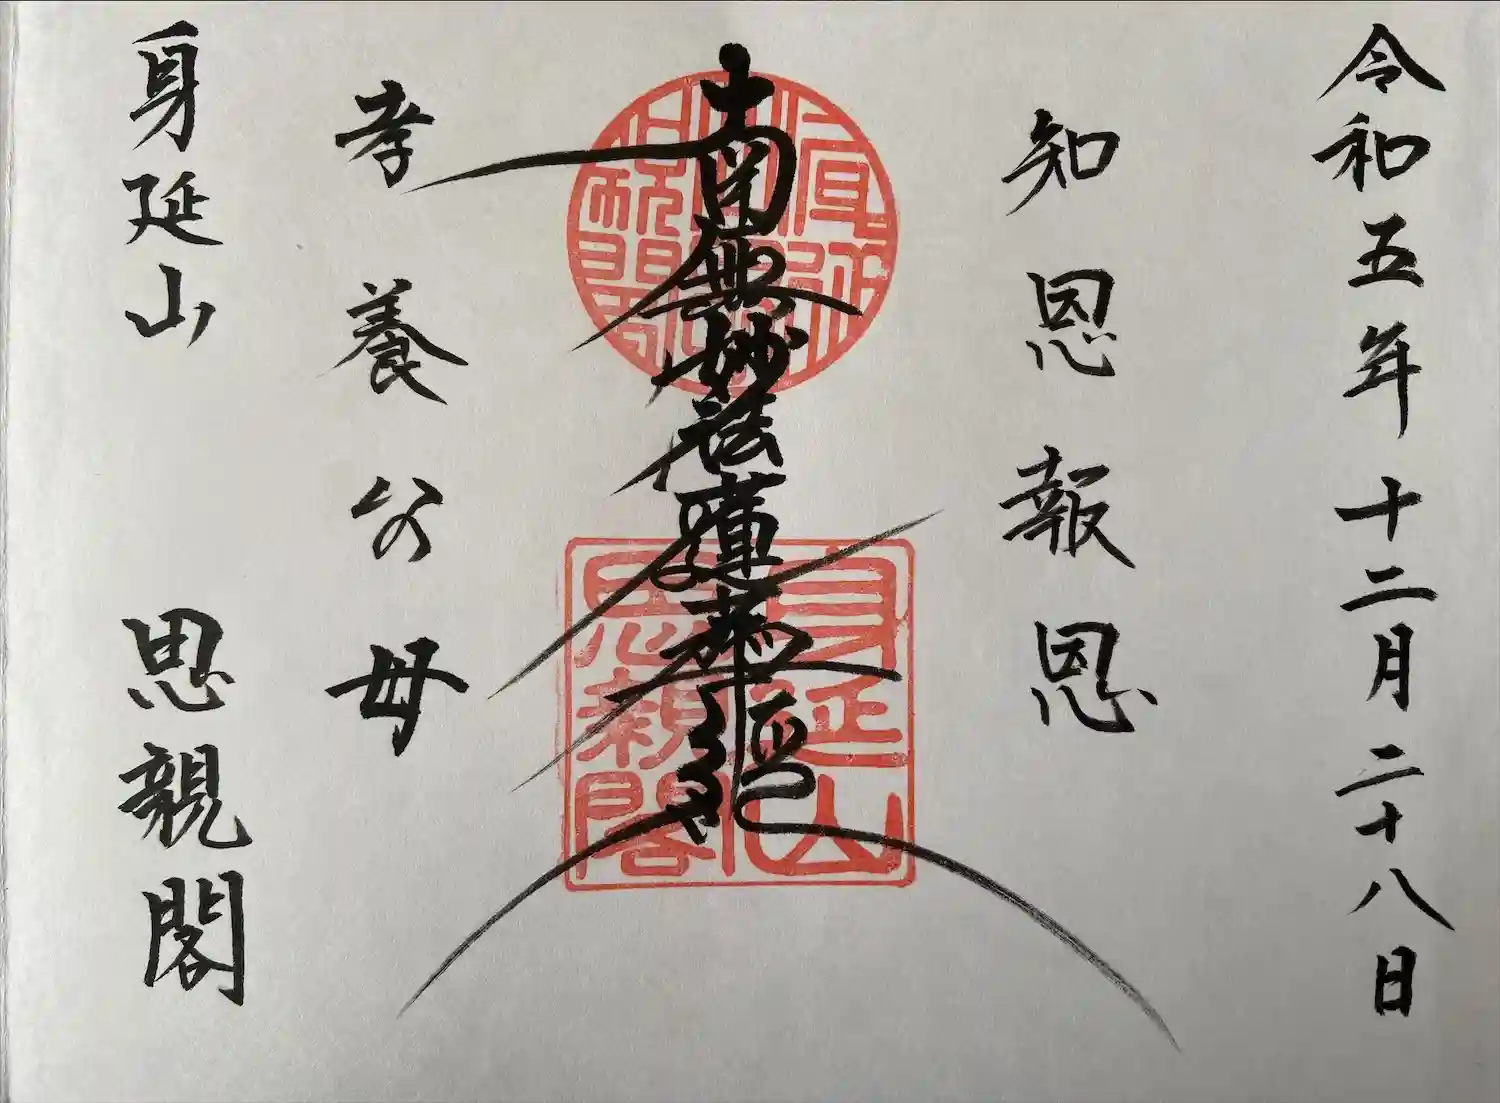 令和五年十二月二十八日
知恩報恩
南無妙法蓮華経
身延山
思親閣
孝養父母
身延山 思親閣